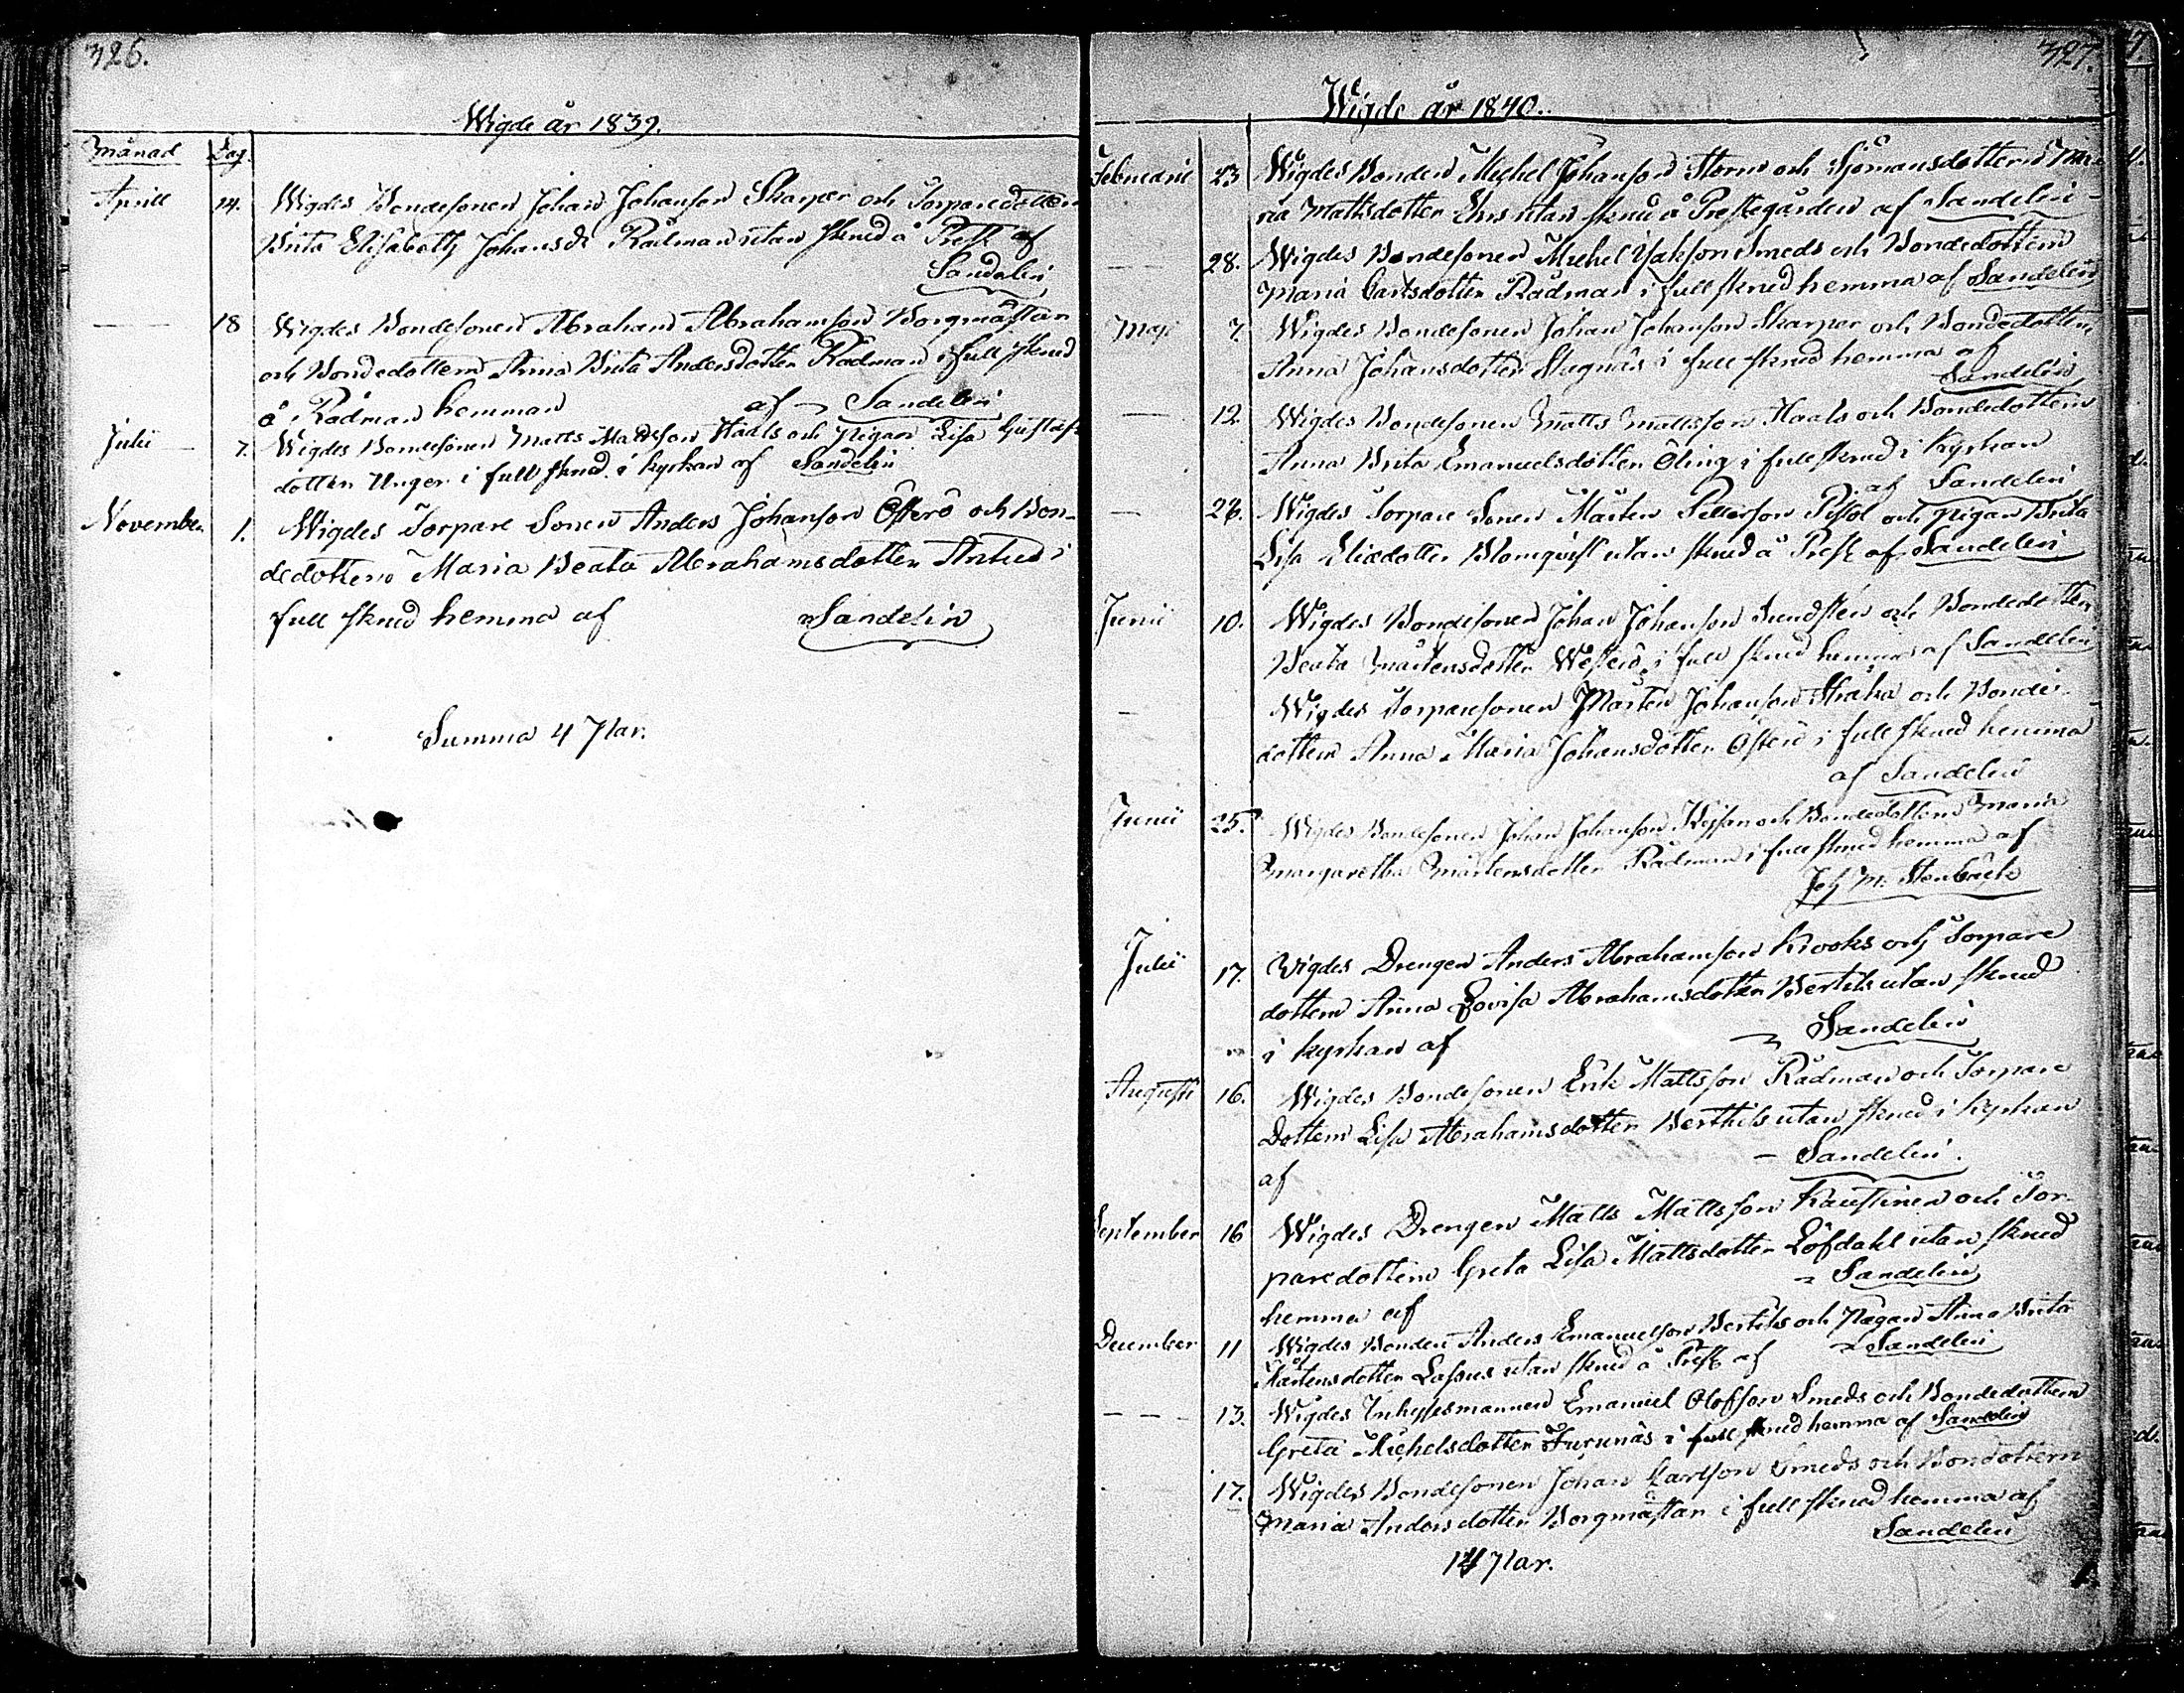 326.
Wigde år 1839.
Månad Dag.
Aprill 14. Wigdes Bondesonen Johan Johanson Skarper och Torparedottern
Brita Elisabeth Johansdr Rådman utan skrud å Prest. af
Sandelin
— 18 Wigdes Bondesonen Abraham Abrahamson Borgmästar
och Bondedottern Anna Brita Andersdotter Rådman i full skrud
å Rådman hemman af — Sandelin
Julii 7. Wigdes Bondesonen Matts Mattsson Haals och pigan Lisa Gustafs
dotter Unger i full skrud i kyrkan af Sandelin
November 1. Wigdes Torpare Sonen Anders Johanson Österö och Bon-
dedottern Maria Beata Abrahamsdotter Antus i
full skrud hemma af Sandelin
Summa 4 Par.
327.
Wigde år 1840.
Februarii 23 Wigdes Bonden Michel Johanson Storm och Sjömansdottern Ma-
ria Mattsdotter Ehrs utan skrud å Prestegården af Sandelin
— 28. Wigdes Bondesonen Michel Jakson Smeds och Bondedottern
Maria Carlsdotter Rådman i full skrud hemma af Sandelin
Maji 7. Wigdes Bondesonen Johan Johanson Skarper och Bondedottern
Anna Johansdotter Skognäs i full skrud hemma af
Sandelin
— 12. Wigdes Bondesonen Matts Mattsson Haals och Bondedottern
Anna Brita Emanuelsdotter Öling i full skrud i kyrkan
af Sandelin
— 28. Wigdes Torpare Sonen Mårten Petterson Pistol och pigan Brita
Lisa Eliædotter Blomqvist utan skrud å Prest. af Sandelin
Junii 10. Wigdes Bondesonen Johan Johanson Sundsten och Bondedottern
Beata Mårtensdotter Westerö i full skrud hemma af Sandelin
— Wigdes Torparesonen Mårten Johanson Straka och Bonde-
dottern Anna Maria Johansdotter Österö i full skrud hemma
af Sandelin
Junii 25. Wigdes Bondesonen Johan Johanson och Bondedottern Maria
Margaretha Mårtensdotter Rådman i full skrud hemma af
Joh M. Stenbäck
Julii 17. Wigdes Drengen Anders Abrahamson Krooks och Torpare
dottern Anna Lovisa Abrahamsdotter Bertils utan skrud
i kyrkan af Sandelin
Augusti 16. Wigdes Bondesonen Erik Mattsson Rådman och Torpare
Dottern Lisa Abrahamsdotter Berthils utan skrud i kyrkan
af — Sandelin.
September 16 Wigdes Drengen Matts Mattsson Kaustinen och Tor-
paredottern Greta Lisa Mattsdotter Löfdahl utan skrud
hemma af Sandelin
December 11 Wigdes Bonden Anders Emanuelson Bertils och Pigan Anna Brita
Mårtensdotter Lassus utan skrud å Prest. af Sandelin
— — 13. Wigdes Inhysesmannen Emanuel Olofson Smeds och Bondedottern
Greta Michelsdotter Furunäs i full skrud hemma af Sandelin
17. Wigdes Bondesonen Johan Karlson Smeds och Bondottern
Maria Andersdotter Borgmästar i full skrud hemma af
Sandelin
14 Par.